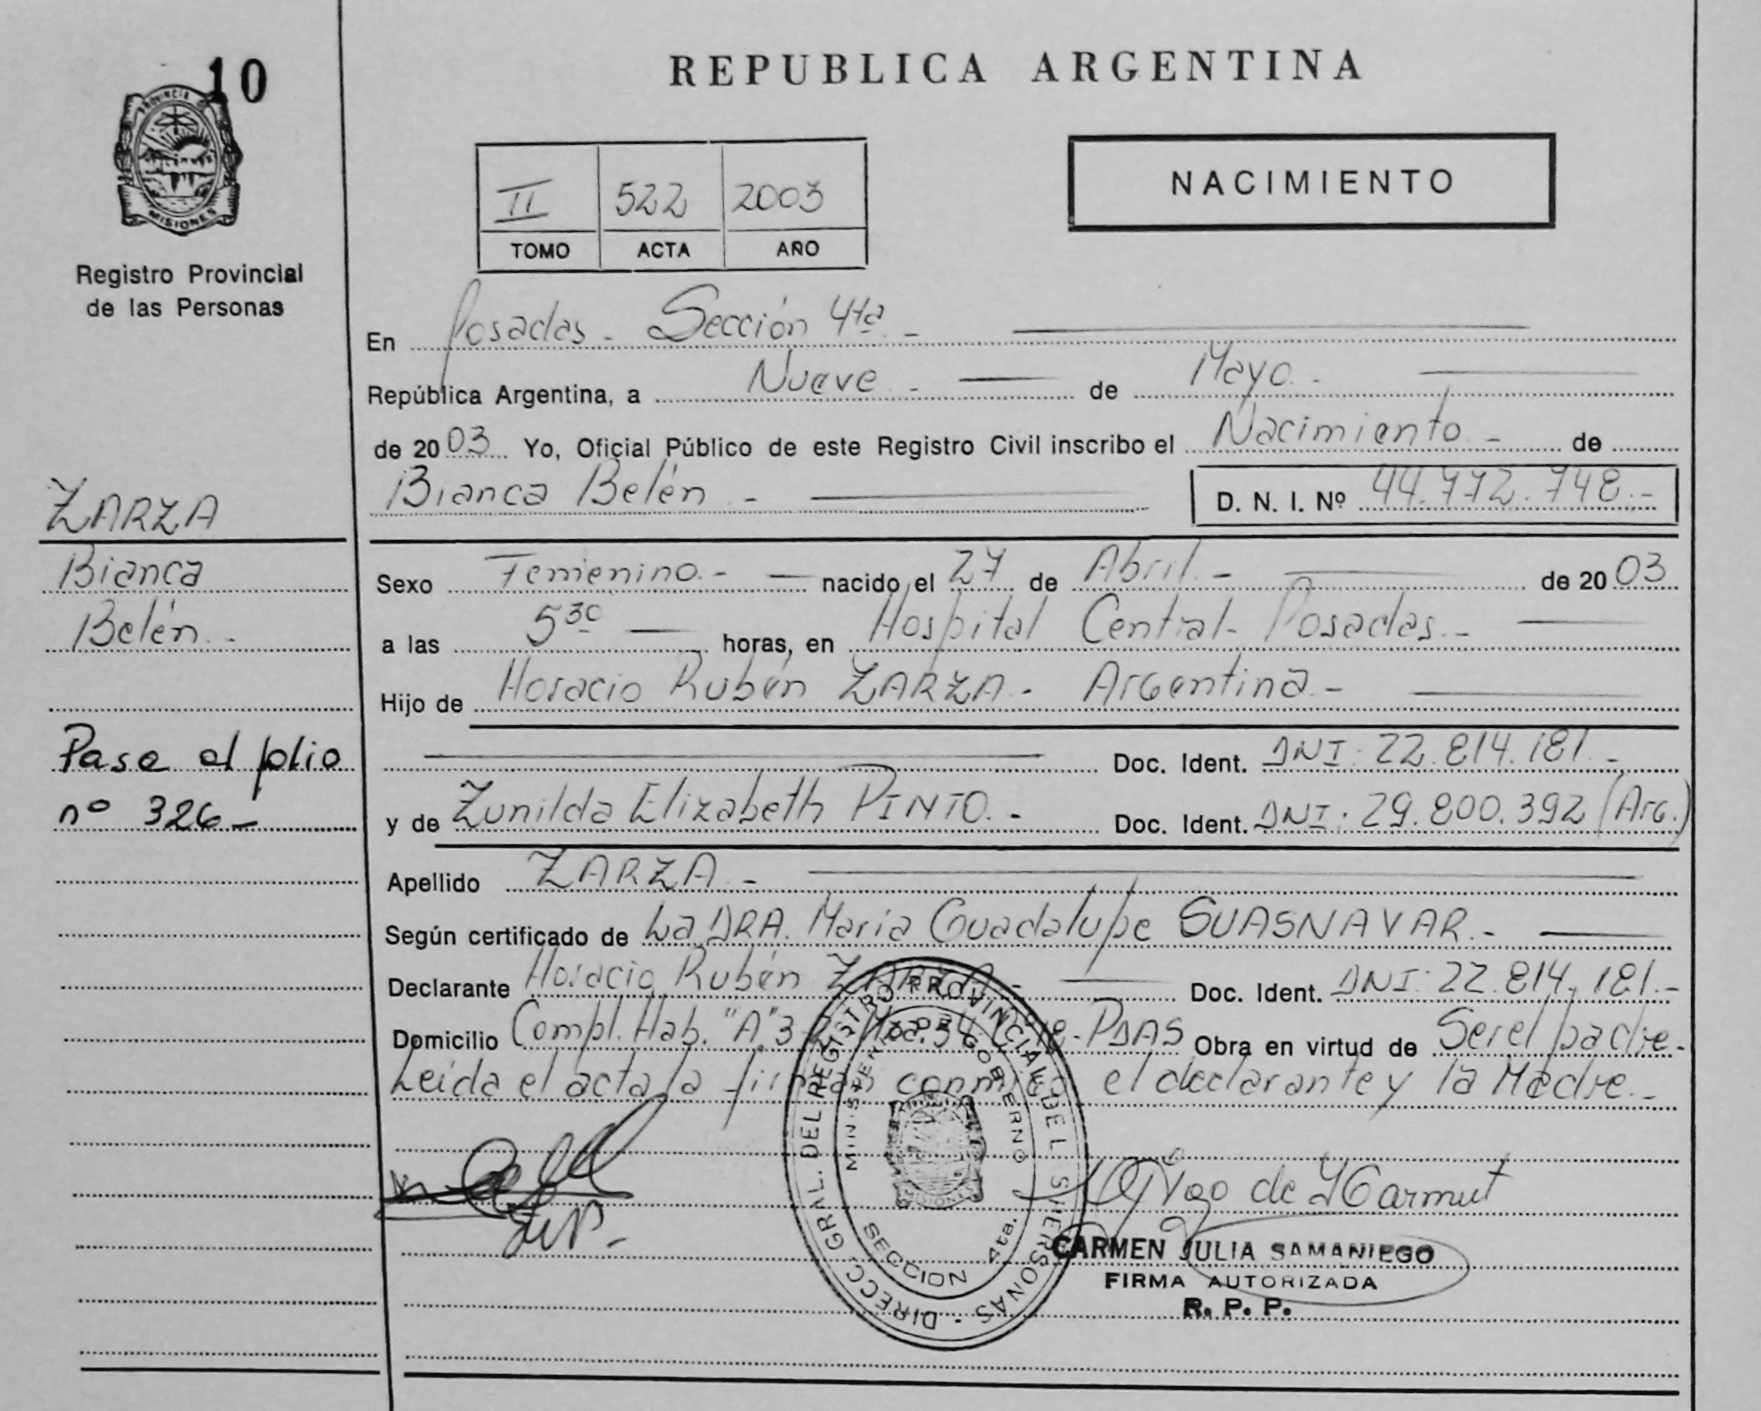 10
PROVINCIA DE
MISIONES
Registro Provincial
de las Personas
ZARZA
Bianca
Belén.-
Pase al folio
nº 326-
REPUBLICA ARGENTINA
II 522 2003
TOMO ACTA AÑO
NACIMIENTO
En Posadas - Sección 4ta -
República Argentina, a Nueve - de Mayo -
de 2003 Yo, Oficial Público de este Registro Civil inscribo el Nacimiento - de
Bianca Belén - D. N. I. Nº 44.972.748.-
Sexo Femenino.- nacido el 27 de Abril.- de 2003
a las 5 30 horas, en Hospital Central- Posadas.-
Hijo de Horacio Rubén ZARZA - Argentina.-
Doc. Ident. DNI: 22.814.181.-
y de Zunilda Elizabeth PINTO.- Doc. Ident. DNI: 29.800.392 (Arg.)
Apellido ZARZA.-
Según certificado de La DRA. María Guadalupe SUASNAVAR.-
Declarante Horacio Rubén ZARZA - Doc. Ident. DNI: 22.814.181.-
Domicilio Compl. Hab. "A" - PDAS Obra en virtud de Ser el padre.-
Leida el acta la firman conmigo el declarante y la Madre.-
DIRECC. GRAL. DEL REGISTRO PROVINCIAL DE LAS PERSONAS
MINISTERIO DE GOBIERNO
MISIONES
SECCION 4ta.
CARMEN JULIA SAMANIEGO
FIRMA AUTORIZADA
R. P. P.